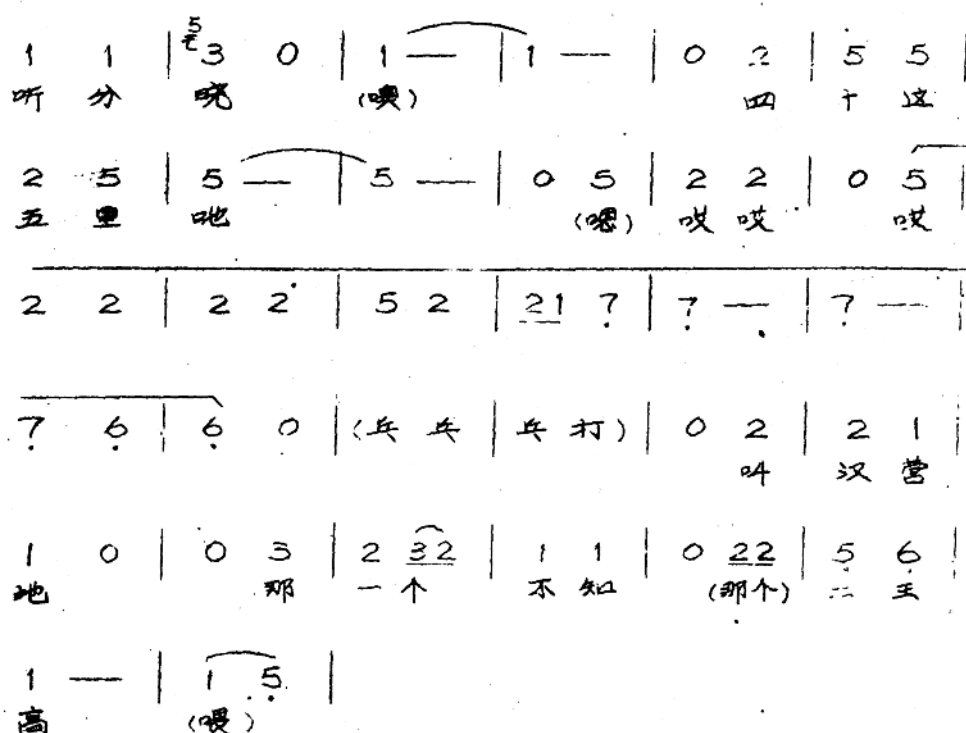 5
1 1 | 3 0 | 1 — | 1 — | 0 2 | 5 5 |
听 分 晓 (噢) 四 十 这
2 5 | 5 — | 5 — | 0 5 | 2 2 | 0 5 |
五 里 地 (嗯) 哎 哎 哎
2 2 | 2 2 | 5 2 | 21 7 | 7 — | 7 — |
7 6 | 6 0 | (乓 乓 | 乓 打) | 0 2 | 2 1 |
叫 汉 营
1 0 | 0 3 | 2 32 | 1 1 | 0 22 | 5 6 |
地 那 一 个 不 知 (那个) 二 王
1 — | 1 5 |
高